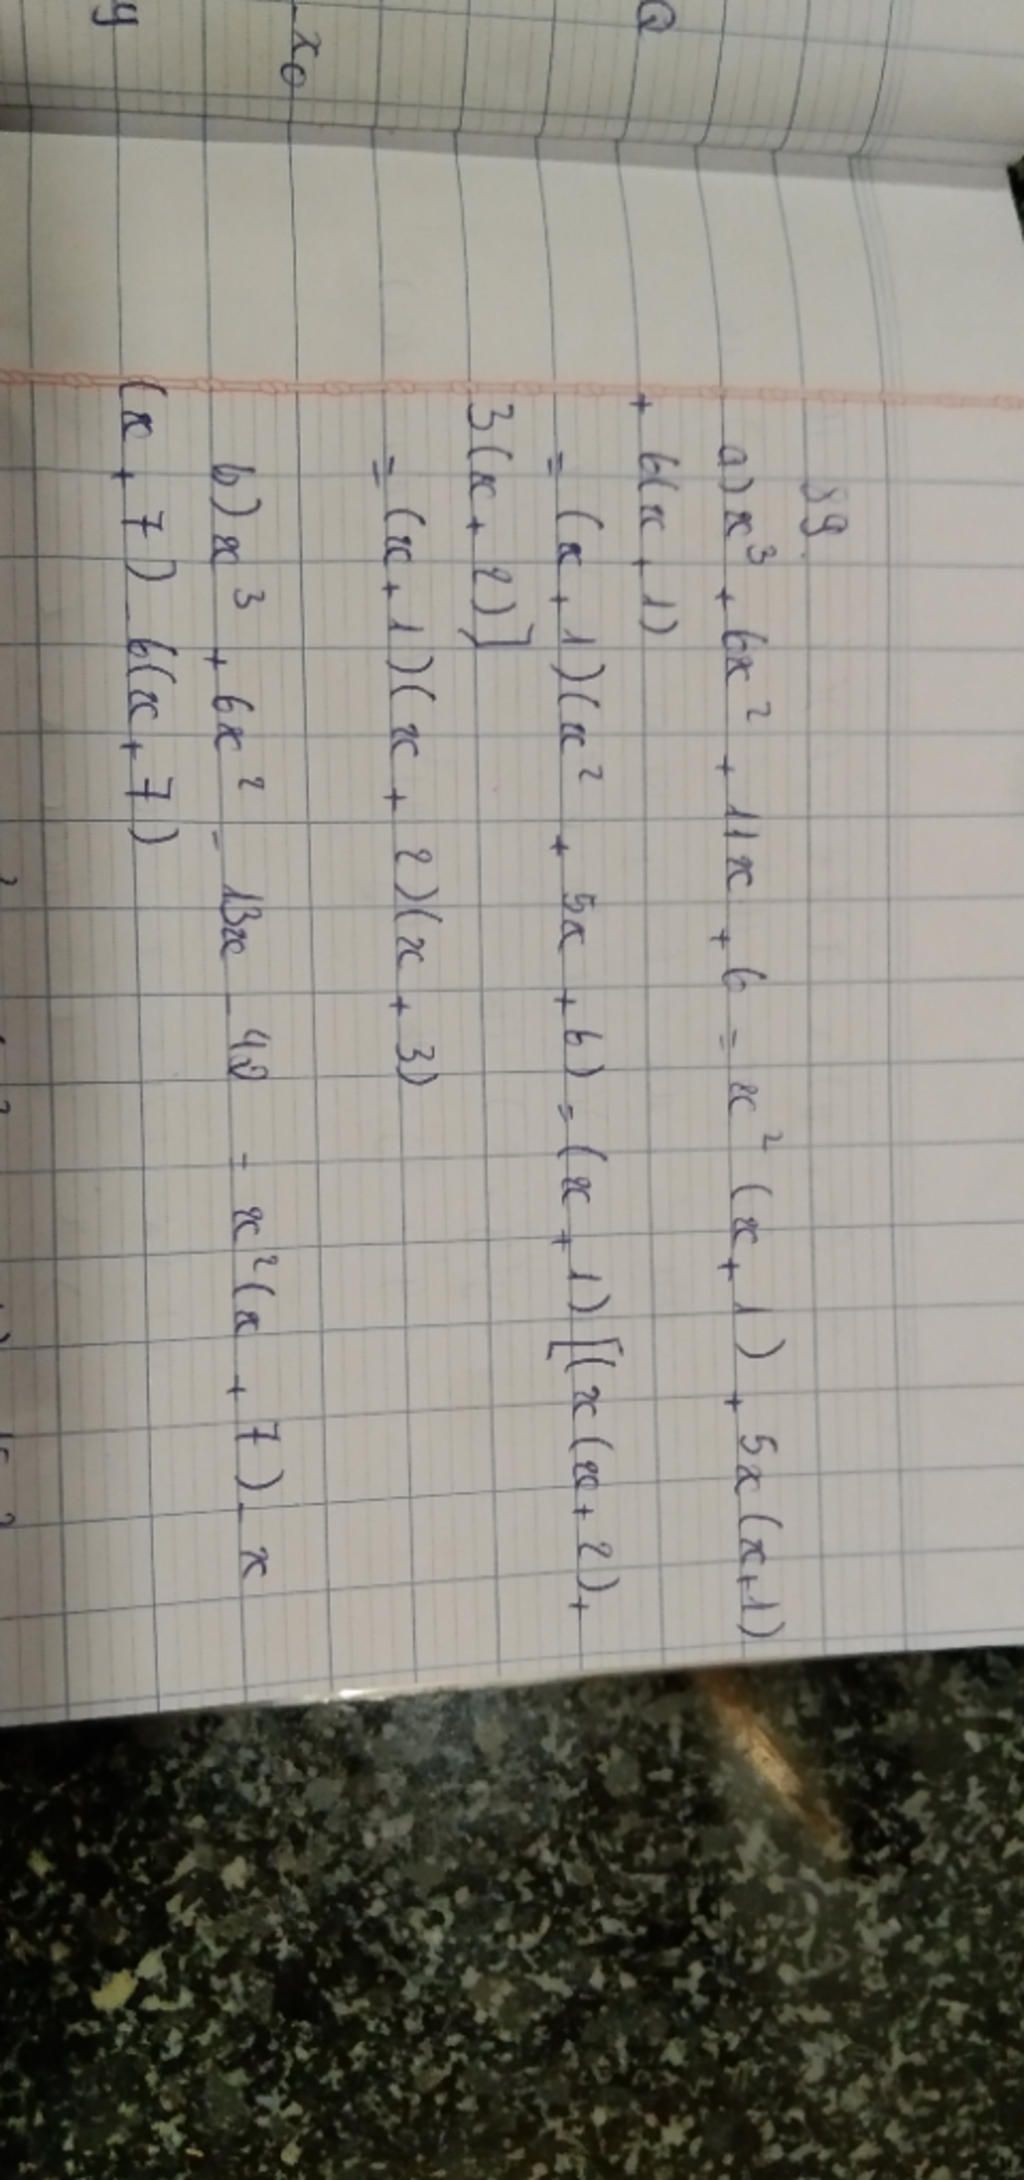 89
a) x³ + 6x² + 11x + 6 = x² (x + 1) + 5x (x+1)
+ 6(x + 1)
= (x + 1)(x² + 5x + 6) = (x + 1) [(x (x + 2) +
3 (x + 2)]
= (x + 1)(x + 2)(x + 3)
b) x³ + 6x² - 13x - 42 = x² (x + 7) - x
(x + 7) - 6(x + 7)
Q
x₀
y